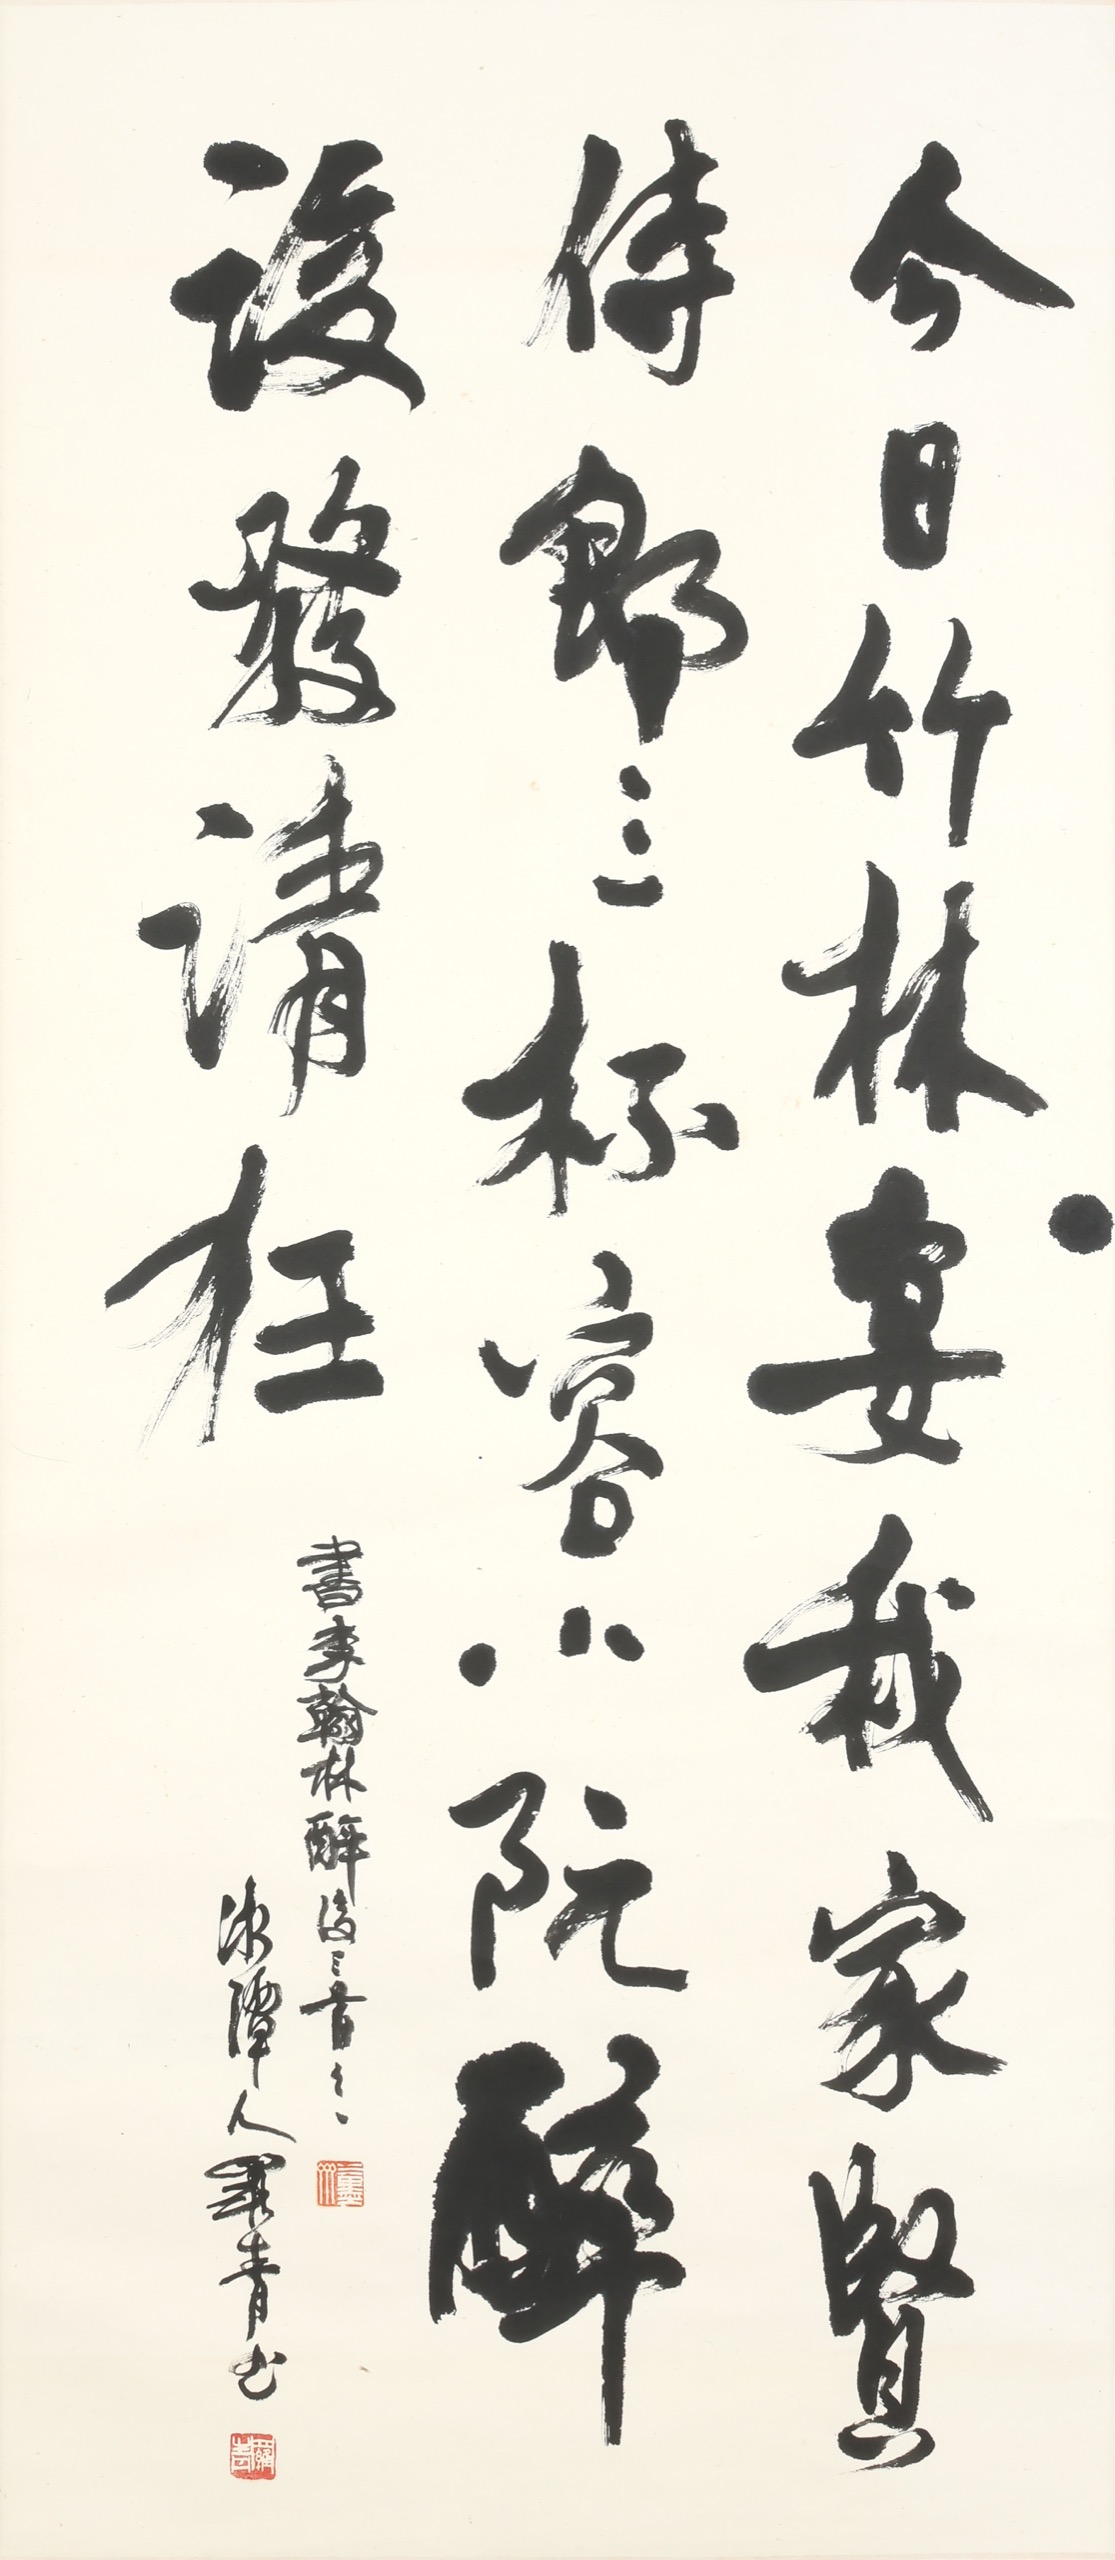 今日竹林宴我家賢
侍郎三杯容小阮醉
後發清狂
書李翰林醉後三首之一
湘潭人羅青書